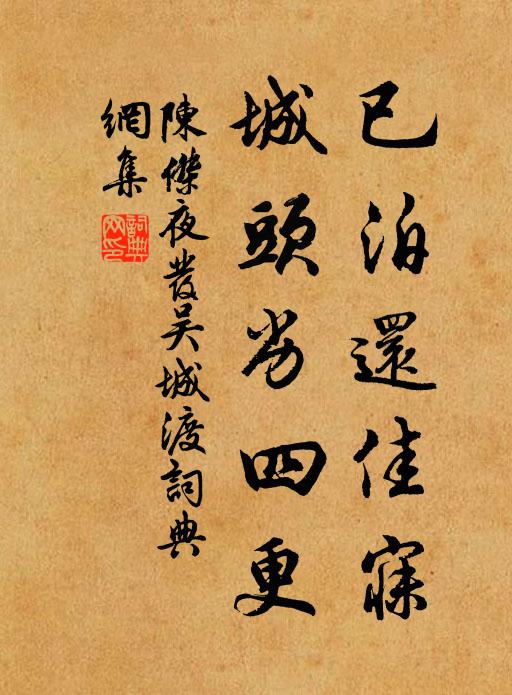 已泊還佳寐
城頭劣四更
陳傑夜發吳城渡詞典
網集
詞典
网印